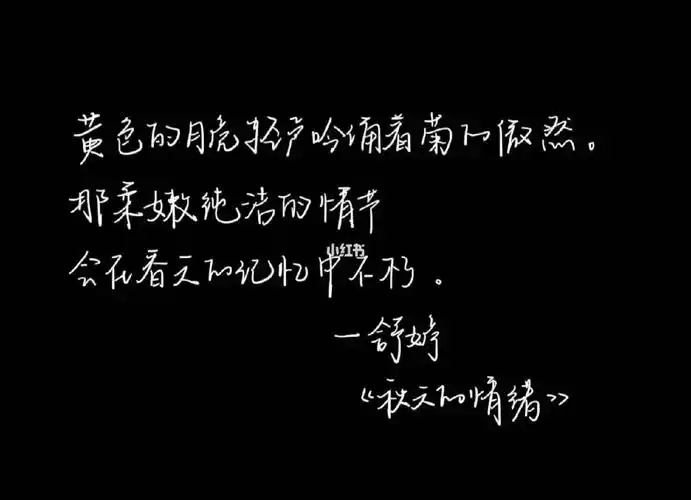 黄色的月亮轻声吟诵着菊的傲然。
那柔嫩纯洁的情节
会在春天的记忆中不朽。
小红书
—舒婷
《秋天的情绪》